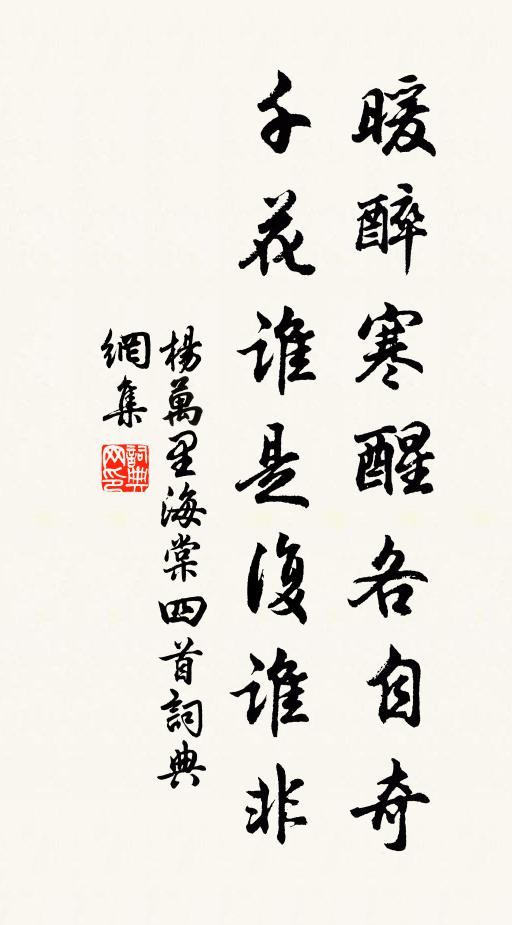 暖醉寒醒各自奇
千花誰是復誰非
楊萬里海棠四首詞典
網集
詞典
网印